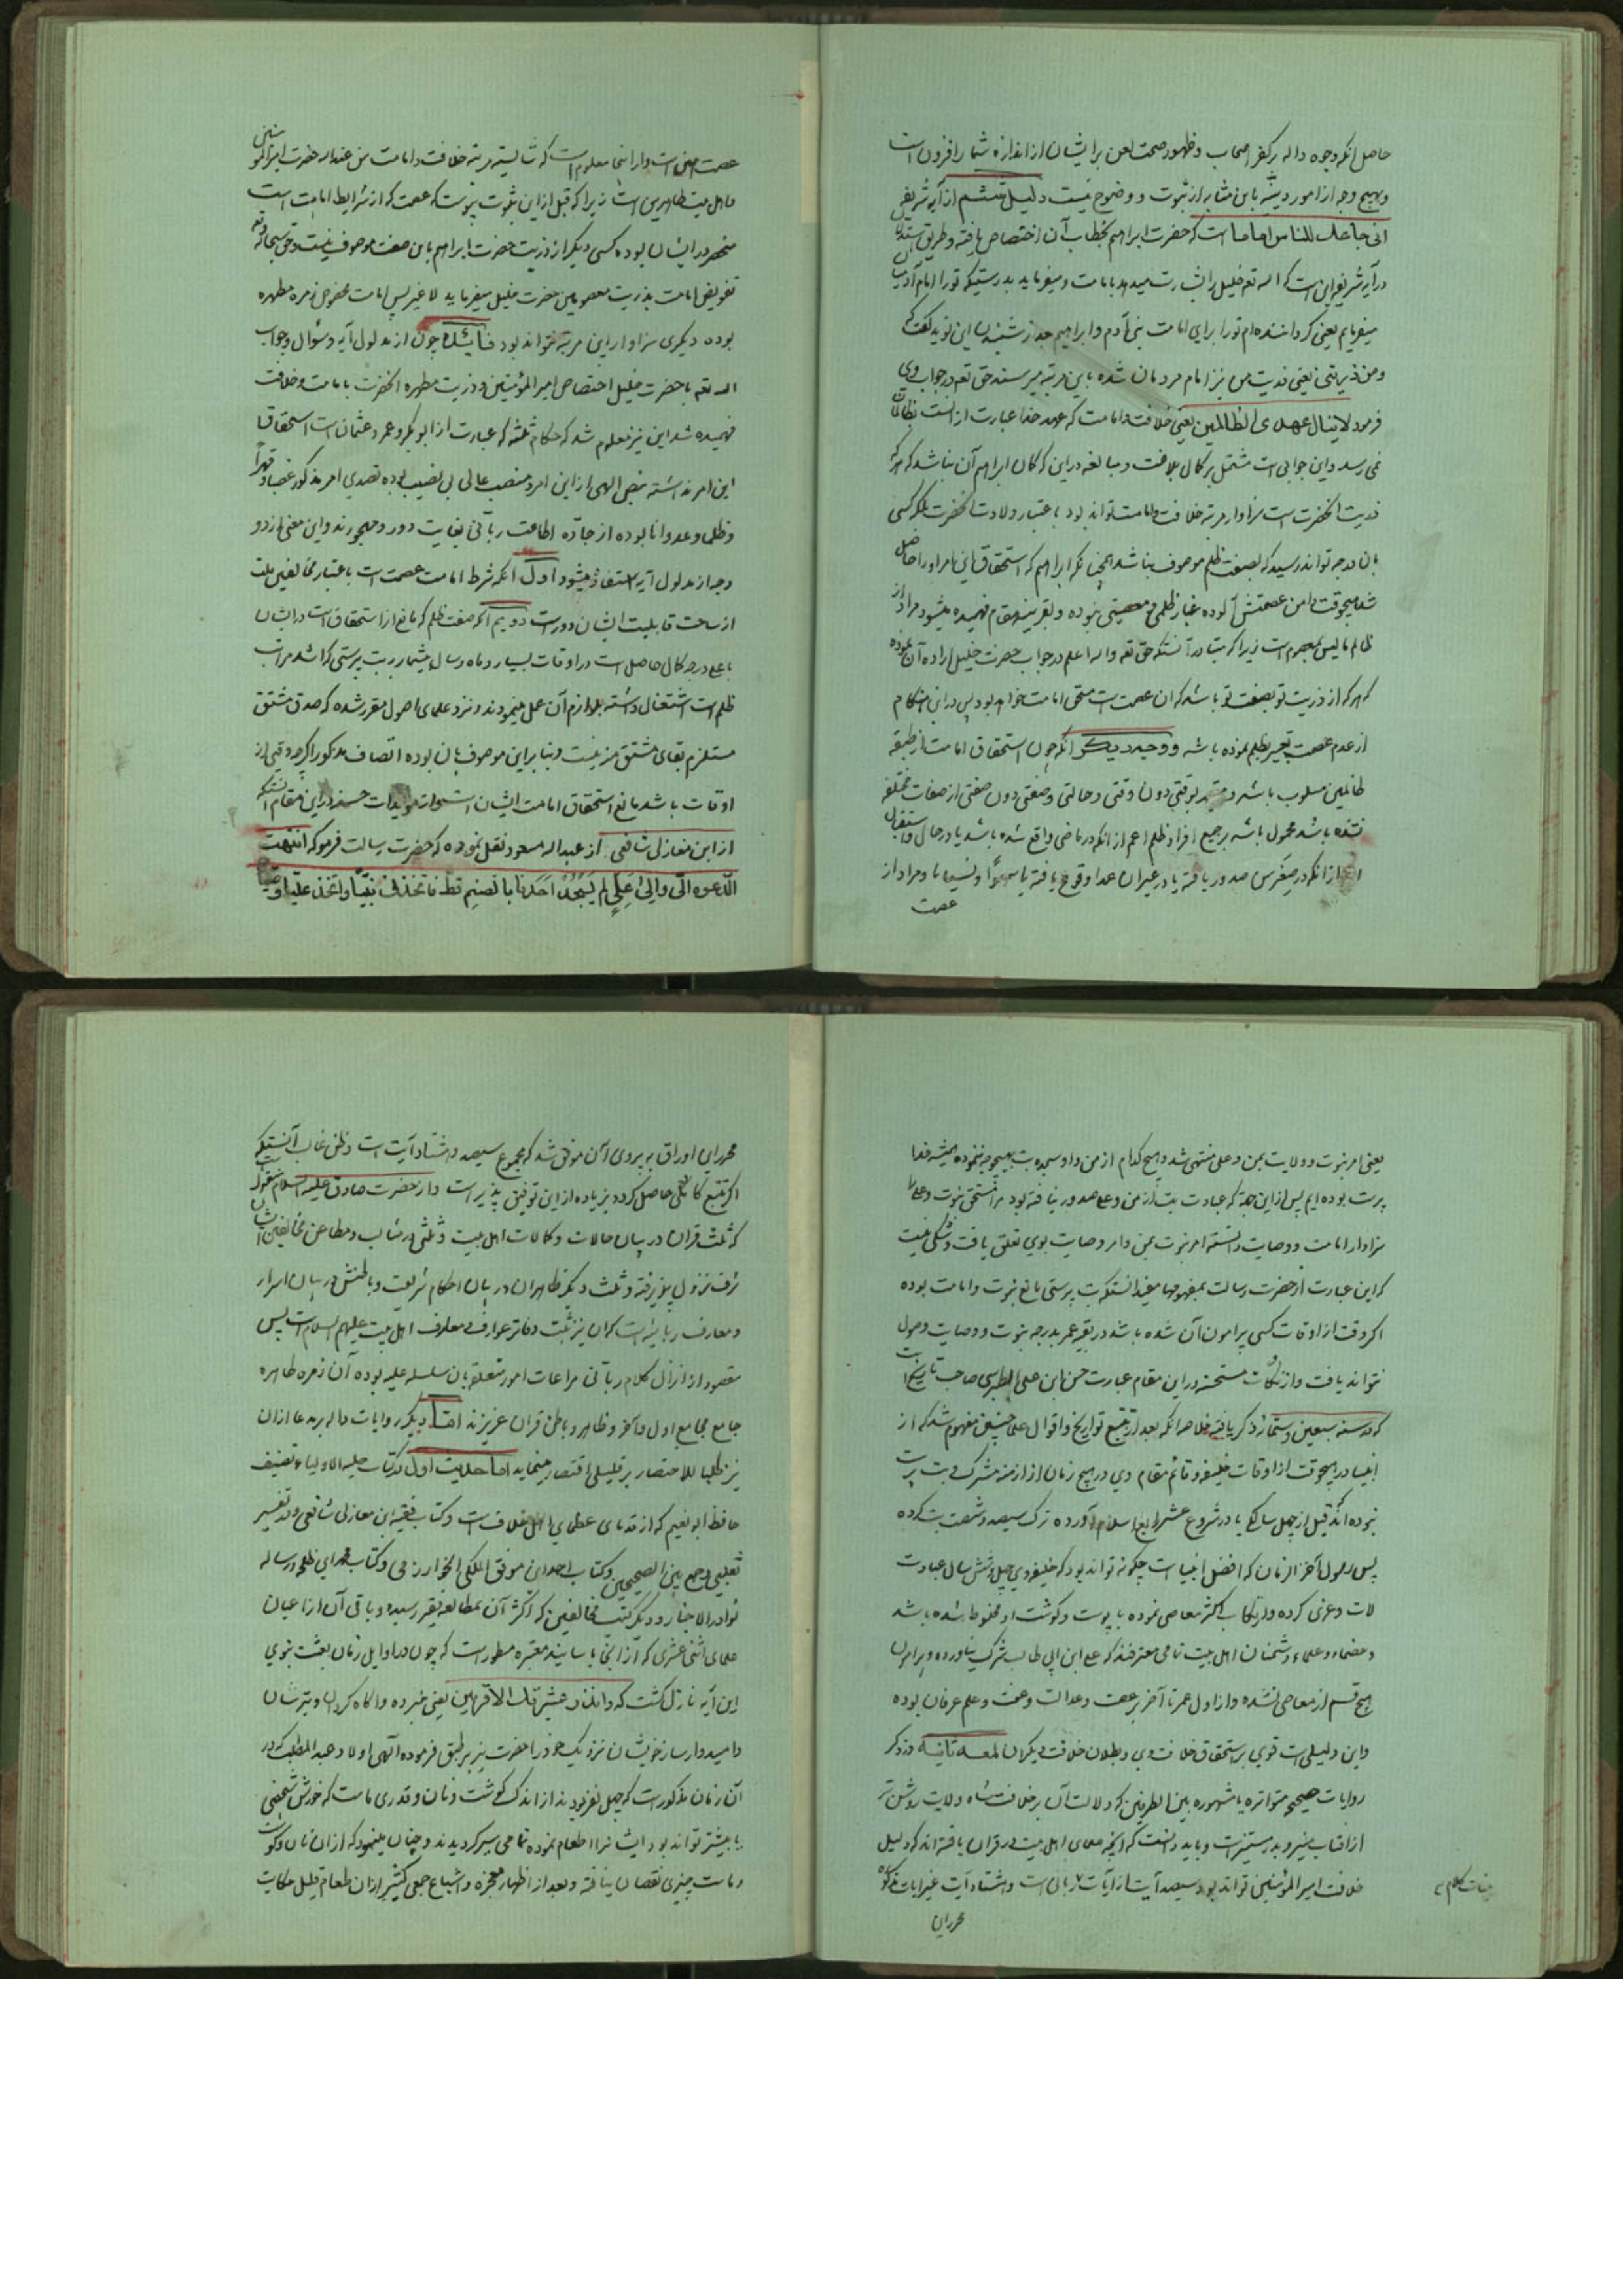 حاصل انکه وجوه داله بر کفر اصحاب و ظهور صحت لعن بر ایشان از اندازه شمار افزون است
و بهیچ وجه از امور دینیه باین مثابه از ثبوت و وضوح نیست دلیل ششم از آیه شریفه
انی جاعلک للناس اماما است که حضرت ابراهیم بخطاب آن اختصاص یافته و طریق استدلال
در آیه شریفه این است که الله تعه خلیل را بشارت میدهد بامامت و میفرماید بدرستیکه تو را امام آدمیان
میفرمایم یعنی کردانیده‌ام تو را برای امامت بنی آدم و ابراهیم بعد از شنیدن این نوید گفت که
و من ذریتی یعنی ذریت من نیز امام مردمان شده باین مرتبه میرسند حق تعه در جواب وی
فرمود لاینال عهدی الظالمین یعنی خلافت و امامت که عهد خدا عبارت از انست بظالمان
نمی رسد و این جوابی است مشتمل بر کمال بلاغت و مبالغه در این که کمان ابراهیم آن نباشد که هر که
ذریت انحضرت است سزاوار مرتبه خلافت و امامت تواند بود باعتبار ولادت انحضرت بلکه کسی
بان درجه تواند رسید که بصفت ظلم موصوف نباشد همچنانکه ابراهیم که استحقاق این امر او را حاصل
شد هیچوقت دامن عصمتش آلوده غبار ظلمی و معصیتی نبوده و بقرینه مقام فهمیده میشود مراد از
ظالم مالیس بمعصوم است زیرا که متبادر آنستکه حق تعه والله اعلم در جواب حضرت خلیل اراده آن نموده
که هر که از ذریت تو بصفت تو باشد که ان عصمت است مستحق امامت خواهد بود پس در این هنکام
از عدم عصمت تعبیر بظلم نموده باشد و وجه دیگر انکه چون استحقاق امامت از طبقه
ظالمین مسلوب باشد و مقید بوقتی دون وقتی و حالتی و صفتی دون صفتی از صفات مختلفه
نشده باشد محمول باشد بر جمیع افراد ظلم اعم از انکه در ماضی واقع شده باشد یا در حال و استقبال
اعم از انکه در صغر سن صدور یافته یا در غیر ان عمدا وقوع یافته یا سهوًا و نسیانا و مراد از
عصمت
عصمت همین است و از اینجا معلوم است که شایسته مرتبه خلافت و امامت من عندالله حضرت امیرالمومنین
و اهل بیت طاهرین است زیرا که قبل از این بثبوت پیوست که عصمت که از شرایط امامت است
منحصر در ایشان بوده کسی دیگر از ذریت حضرت ابراهیم باین صفت موصوف نیست و حق سبحانه و تعه
تفویض امامت بذریت معصومین حضرت خلیل میفرماید لاغیر پس امامت مخصوص زمره مطهره
بوده دیکری سزاوار این مرتبه نتواند بود فائده چون از مدلول آیه و سؤال و جواب
الله تعه با حضرت خلیل اختصاص امیرالمؤمنین و ذریت مطهره انحضرت بامامت و خلافت
فهمیده شد این نیز معلوم شد که حکام ثلثه که عبارت از ابوبکر و عمر و عثمان است استحقاق
این امر نداشته بنص الهی از این امر و منصب عالی بی نصیب بوده تصدی امر مذکور غصبا و قهراً
و ظلما و عدوانا بوده از جاده اطاعت ربانی بغایت دور و مهجورند و این معنی از دو
وجه از مدلول آیه استفاده میشود اول انکه شرط امامت عصمت است باعتبار مخالفین ملت
از ساحت قابلیت ایشان دور است دویم انکه صفت ظلم که مانع از استحقاق است در ایشان
باعلی درجه کمال حاصل است در اوقات بسیار و ماه و سال بیشمار به بت پرستی که اشد مراتب
ظلم است اشتغال داشته بلوازم آن عمل مینمودند و نزد علمای اصول مقرر شده که صدق مشتق
مستلزم بقای مشتق منه نیست و بنابراین موصوف بان بوده اتصاف مذکور اکرچه وقتی از
اوقات باشد مانع استحقاق امامت ایشان است و از مویدات حسنه در این مقام آنستکه
از ابن مغازلی شافعی از عبدالله مسعود نقل نموده که حضرت رسالت فرمود که انتهت
الدعوه الیّ و الی علیّ لم یسجد احدنا بالصنم قط فاتخذنی نبیّا و اتخذ علیّا وصیّا
یعنی امر نبوت و ولایت بمن و علی منتهی شد و هیچ کدام از من و او سجده بت بهیچوجه ننموده همیشه خدا
پرست بوده‌ایم پس از این جهة که عبادت بت از من و علی صدور نیافته بود مرا مستحق نبوت و علی را
سزاوار امامت و وصایت دانسته امر نبوت بمن و امر وصایت بوی تعلق یافت و شکی نیست
که این عبارت از حضرت رسالت بمفهومها مفید انستکه بت پرستی مانع نبوت و امامت بوده
اکر وقت از اوقات کسی پیرامون آن شده باشد در بقیه عمر بدرجه نبوت و وصایت وصول
نتواند یافت و از نکات مستحسنه در این مقام عبارت حسن ابن علی الطبرسی صاحب تاریخ است
که در سنه سبعین و ستمائه ذکر یافته خلاصه انکه بعد از تتبع تواریخ و اقوال علما چنین مفهوم شد که از
انبیا در هیچوقت از اوقات خلیفه و قائم مقام وی در هیچ زمان از ازمنه مشرک و بت پرست
نبوده اند قبل از چهل سالکی یا در شروع عشر رابع اسلام آورده ترک سیصد و شصت بت کرده
پس رسول آخرالزمان که افضل انبیا است چکونه تواند بود که خلیفه وی چهل و شش سال عبادت
لات و عزی کرده و ارتکاب اکثر معاصی نموده با پوست و کوشت او مخلوط شده باشد
و خصماء و علماء و دشمنان اهل بیت تمامی معترفند که علی ابن ابی طالب شرک نیاورده و پیرامون
هیچ قسم از معاصی نشده و از اول عمر تا آخر بر عصمت و عدالت و عفت و علم عرفان بوده
و این دلیلی است قوی بر استحقاق خلافت وی و بطلان خلافت دیکران لمعه ثانیه در ذکر
روایات صحیحه متواتره یا مشهوره بین الطرفین که دلالت آن بر خلافت شاه ولایت روشن تر
از افتاب منیر و بدر مستنیر است و باید دانست که انچه علمای اهل بیت در قران یافته اند که دلیل
خلافت امیرالمؤمنین تواند بود سیصد آیت از آیات ربانی است و هشتاد آیت غیر ایات مذکوره
محرر این
محرر این اوراق به پیروی آن موفق شد که مجموع سیصد و هشتاد آیت است و ظن غالب آنستیکه
اکر تتبع کاملی حاصل کردد بزیاده از این توفیق پذیر است و از حضرت صادق علیه السلام منقول است
که ثلث قران در بیان حالات و کمالات اهل بیت و ثلثی در مثالب و مطاعن مخالفین ایشان
شرف نزول پذیرفته و ثلث دیکر ظاهر ان در بیان احکام شریعت و باطنش در بیان اسرار
و معارف ربانیه است که ان نیز مثبت دفاتر عوارف و معارف اهل بیت علیهم السلام است پس
مقصود از انزال کلام ربانی مراعات امور متعلقه بان سلسله علیه بوده آن زمره طاهره
جامع مجامع اول و آخر و ظاهر و باطن قران عزیزند امّا دیگر روایات داله بر مدعا از ان
نیز طلبا للاختصار بر قلیلی اقتصار مینماید اما حدیث اول در کتاب حلیه الاولیاء تصنیف
حافظ ابونعیم که از قدمای عظمای اهل خلاف است و کتاب فقیه ابن مغازلی شافعی و تفسیر
ثعلبی و جمع بین الصحیحین و کتاب احمد ابن موفق المکی الخوارزمی و کتاب و رساله
نوادر الاخبار و دیگر کتب مخالفین که اکثر آن بمطالعه فقیر رسیده و باقی آن از اعیان
علمای اثنی عشری که از انجا باسانید معتبره مسطور است که چون در اوایل زمان بعثت نبوی
این آیه نازل گشت که وانذر عشیرتک الاقربین یعنی خبر ده و اکاه کردان و بترسان
و امیدوار ساز خویشان نزدیک خود را حضرت نیز بر طبق فرموده الهی اولاد عبدالمطلب که در
آن زمان مذکور است که چهل نفر بودند از اندک کوشت و نان و قدری ماست که خورش شخصی
یا بیشتر تواند بود ایشانرا اطعام نموده تمامی سیر کردیدند و چنان مینمود که از ان نان و کوشت
و ماست چیزی نقصان نیافته و بعد از اظهار معجزه و اشباع جمعی کثیر از ان طعام قلیل حکایت